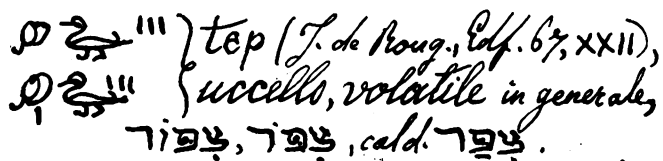 tep (J. de Roug., Edf. 67, XXII),
uccello, volatile in generale,
צִפּוֹר, צִפֹּר, cald. צִפַּר.